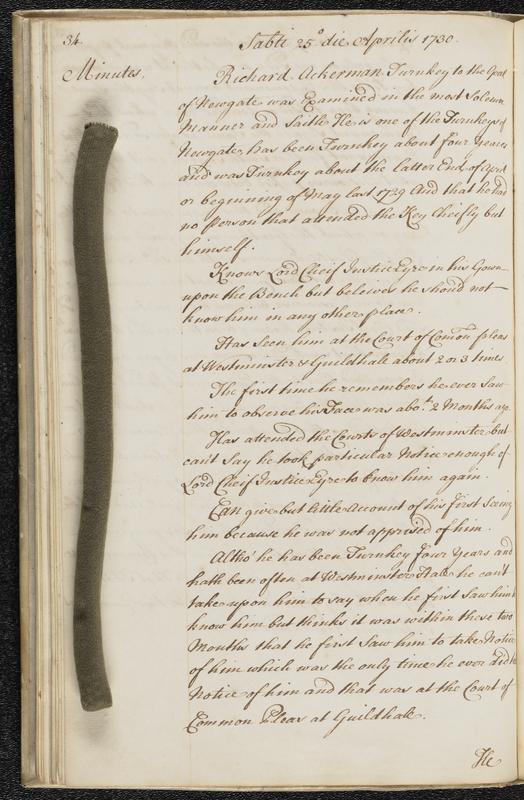 34
Sabti 25° die Aprilis 1730.
Minutes,
Richard Ackerman Turnkey to the Goal
of Newgate was Examined in the most Solemn
Manner and Saith He is one of the Turnkeys of
Newgate, has been Turnkey about four Years
and was Turnkey about the latter End of April
or beginning of May last 1729 And that he had
no Person that attended the Key Cheifly but
himself.
Knows Lord Cheif Justice Eyre in his Gown
upon the Bench but beleives he should not
know him in any other place.
Has seen him at the Court of Comon pleas
at Westminster & Guildhall about 2 or 3 times
The first time he remembers he ever Saw
him to observe his Face was abot. 2 Months ago.
Has attended the Courts of Westminster but
can't Say he took particular Notice enough of
Lord Cheif Justice Eyre to know him again.
Can give but little Account of his first Seeing
him because he was not apprised of him.
Altho' he has been Turnkey four Years and
hath been often at Westminster Hall he can't
take upon him to say when he first Saw him to
know him but thinks it was within these two
Months that he first Saw him to take Notice
of him which was the only time he ever did take
Notice of him and that was at the Court of
Common Pleas at Guildhall.
He